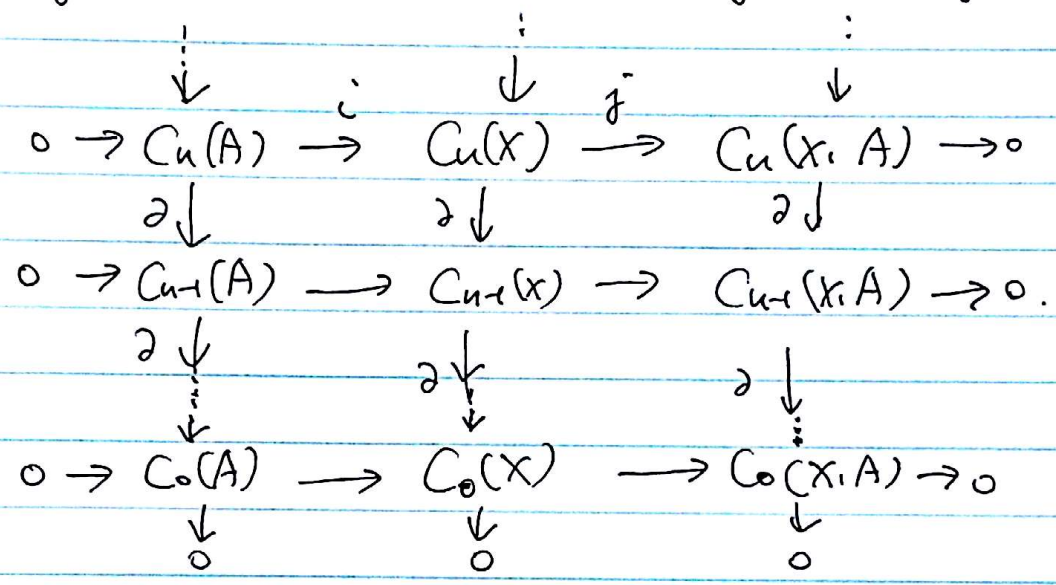 i j
0 → Cn(A) → Cn(X) → Cn(X, A) → 0
∂↓ ∂↓ ∂↓
0 → Cn-1(A) → Cn-1(X) → Cn-1(X, A) → 0.
∂↓ ∂↓ ∂↓
0 → C0(A) → C0(X) → C0(X, A) → 0
↓ ↓ ↓
0 0 0